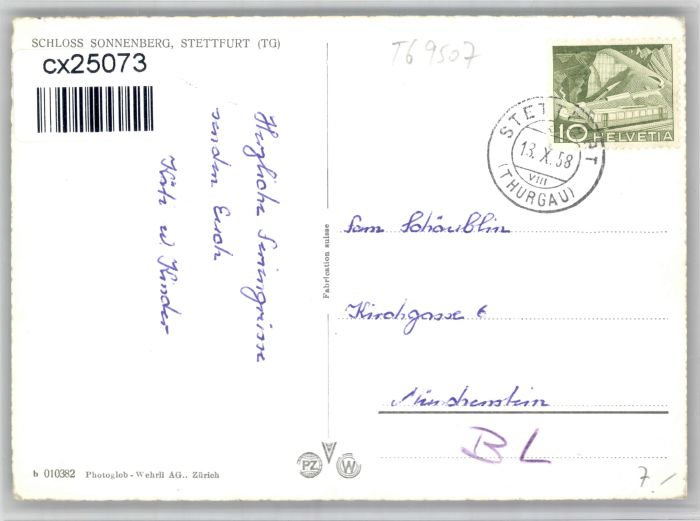 SCHLOSS SONNENBERG, STETTFURT (TG)
cx25073
T6 9507
10 HELVETIA
STETTFURT
13. X. 58
VIII
(THURGAU)
Herzliche
senden Euch
Käti u Kinder
Fabrication suisse
Fam Schäublin
Kirchgasse 6
Münchenstein
BL
b 010382 Photoglob-Wehrli AG., Zürich
PZ W
7.-